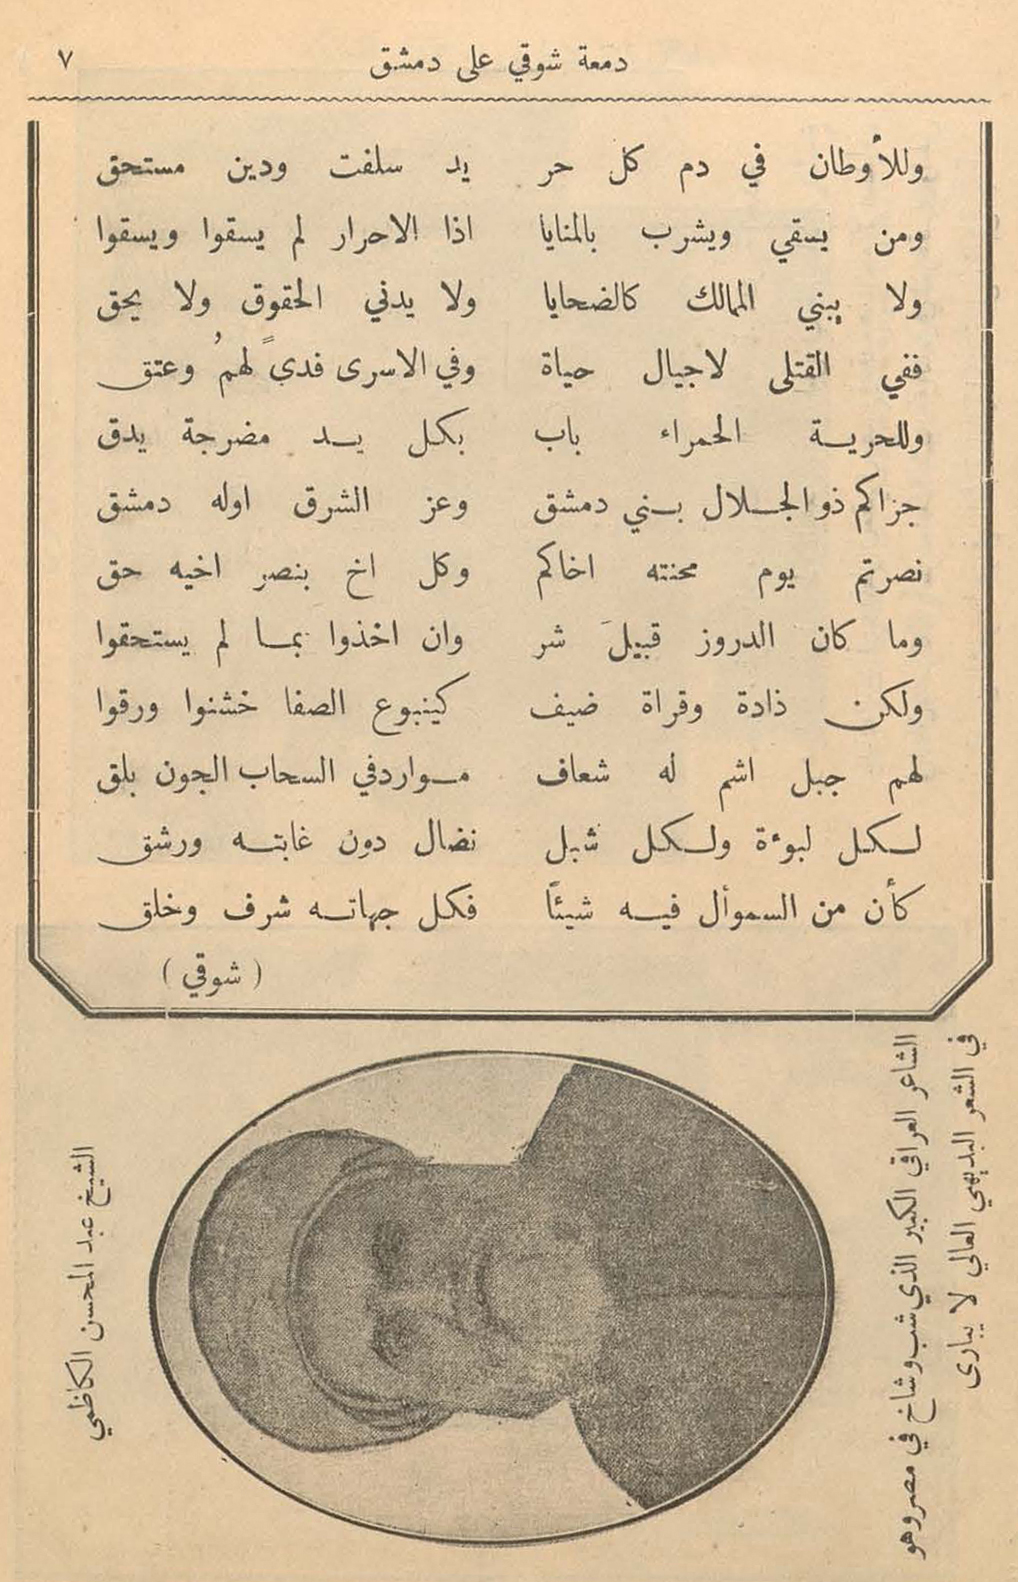 دمعة شوقي على دمشق ٧
وللأوطان في دم كل حر يد سلفت ودين مستحق
ومن يسقي ويشرب بالمنايا اذا الاحرار لم يسقوا ويسقوا
ولا يبني الممالك كالضحايا ولا يدني الحقوق ولا يحق
ففي القتلى لاجيال حياة وفي الاسرى فدىً لهمُ وعتق
وللحرية الحمراء باب بكل يد مضرجة يدق
جزاكم ذو الجلال بني دمشق وعز الشرق اوله دمشق
نصرتم يوم محنته اخاكم وكل اخ بنصر اخيه حق
وما كان الدروز قبيلَ شر وان اخذوا بما لم يستحقوا
ولكن ذادة وقراة ضيف كينبوع الصفا خشنوا ورقوا
لهم جبل اشم له شعاف موارد في السحاب الجون بلق
لكل لبوءة ولكل شبل نضال دون غابته ورشق
كأن من السموأل فيه شيئاً فكل جهاته شرف وخلق
( شوقي )
الشيخ عبد المحسن الكاظمي
الشاعر العراقي الكبير الذي شب وشاخ في مصر وهو
في الشعر البديهي العالي لا يبارى